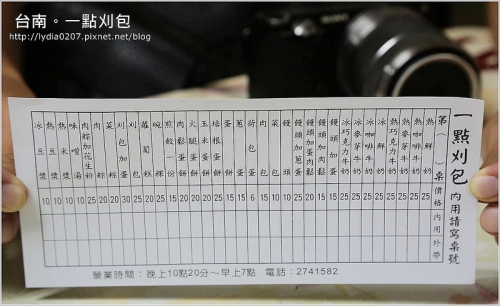 台南。一點刈包
http://lydia0207.pixnet.net/blog
一點刈包 內用請寫桌號
第( )桌 價格 內用 外帶
熱鮮奶 25
熱咖啡牛奶 25
熱麥芽牛奶 25
熱巧克力牛奶 25
冰鮮奶 25
冰咖啡牛奶 25
冰麥芽牛奶 25
冰巧克力牛奶 25
饅頭加蔥蛋
饅頭加蛋肉鬆
饅頭加肉鬆
饅頭加蛋
饅頭 10
菜包 10
肉包 15
荷包蛋 6
蔥蛋 15
蛋餅 15
培根蛋餅 20
玉米蛋餅 20
火腿蛋餅 20
肉鬆蛋餅 20
煎餃一份 15
碗粿 25
蘿蔔糕 20
刈包 25
刈包加蛋 30
菜粽 20
肉粽 20
肉粽加花生粉 25
味噌湯 10
熱米漿 10
熱豆漿 10
冰豆漿 10
營業時間：晚上10點20分～早上7點 電話：2741582